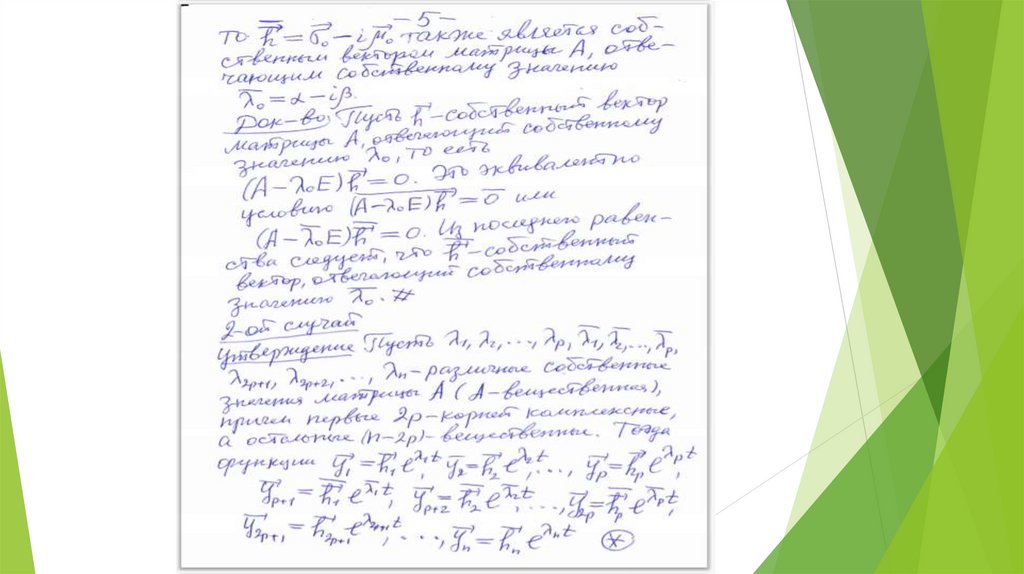 — 5 —
то \overline{\vec{h}} = \vec{σ}₀ − i\vec{μ}₀ также является соб-
ственным вектором матрицы A, отве-
чающим собственному значению
\overline{λ}₀ = α − iβ.
Док-во: Пусть \vec{h} – собственный вектор
матрицы A, отвечающий собственному
значению λ₀, то есть
(A − λ₀E)\vec{h} = 0. Это эквивалентно
условию \overline{(A − λ₀E)\vec{h}} = \overline{0} или
(A − \overline{λ}₀E)\overline{\vec{h}} = 0. Из последнего равен-
ства следует, что \overline{\vec{h}} – собственный
вектор, отвечающий собственному
значению \overline{λ}₀. #
2-ой случай
Утверждение Пусть λ₁, λ₂, ..., λp, \overline{λ}₁, \overline{λ}₂, ..., \overline{λ}p,
λ₂p₊₁, λ₂p₊₂, ..., λn – различные собственные
значения матрицы A (A – вещественная),
причем первые 2p – корней комплексные,
а остальные (n−2p) – вещественные. Тогда
функции \vec{y}₁ = \vec{h}₁ e^{λ₁t}, \vec{y}₂ = \vec{h}₂ e^{λ₂t}, ..., \vec{y}p = \vec{h}p e^{λpt},
\vec{y}p₊₁ = \overline{\vec{h}}₁ e^{\overline{λ}₁t}, \vec{y}p₊₂ = \overline{\vec{h}}₂ e^{\overline{λ}₂t}, ..., \vec{y}₂p = \overline{\vec{h}}p e^{\overline{λ}pt},
\vec{y}₂p₊₁ = \vec{h}₂p₊₁ e^{λ₂p₊₁t}, ..., \vec{y}n = \vec{h}n e^{λnt} (*)